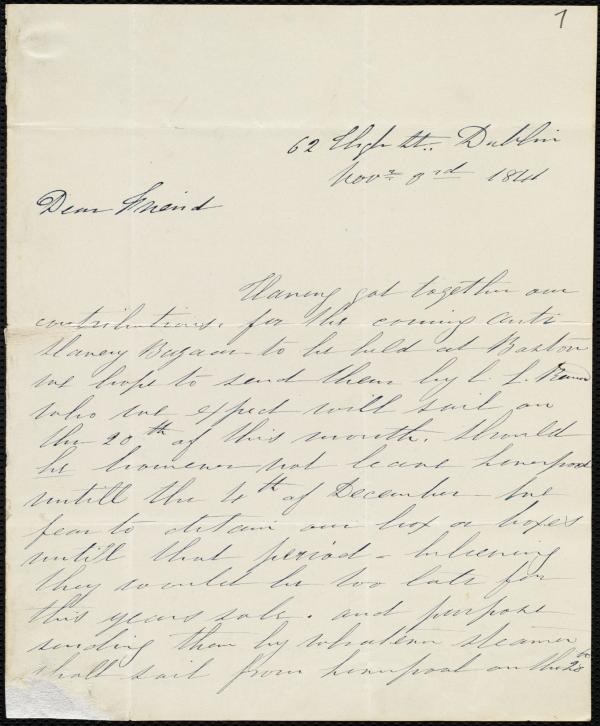 7
62 High St., Dublin
Novr 3rd 1841
Dear Friend
Having got together our
contributions, for the coming Anti
Slavery Bazaar to be held at Boston
we hope to send them by C. L. Remond
who we expect will sail on
the 20th of this month. Should
he however not leave Liverpool
untill the 4th of December - we
fear to detain our box or boxes
untill that period - believing
they would be too late for
this years sale. and purpose
sending them by whatever steamer
shall sail from Liverpool on the 20th